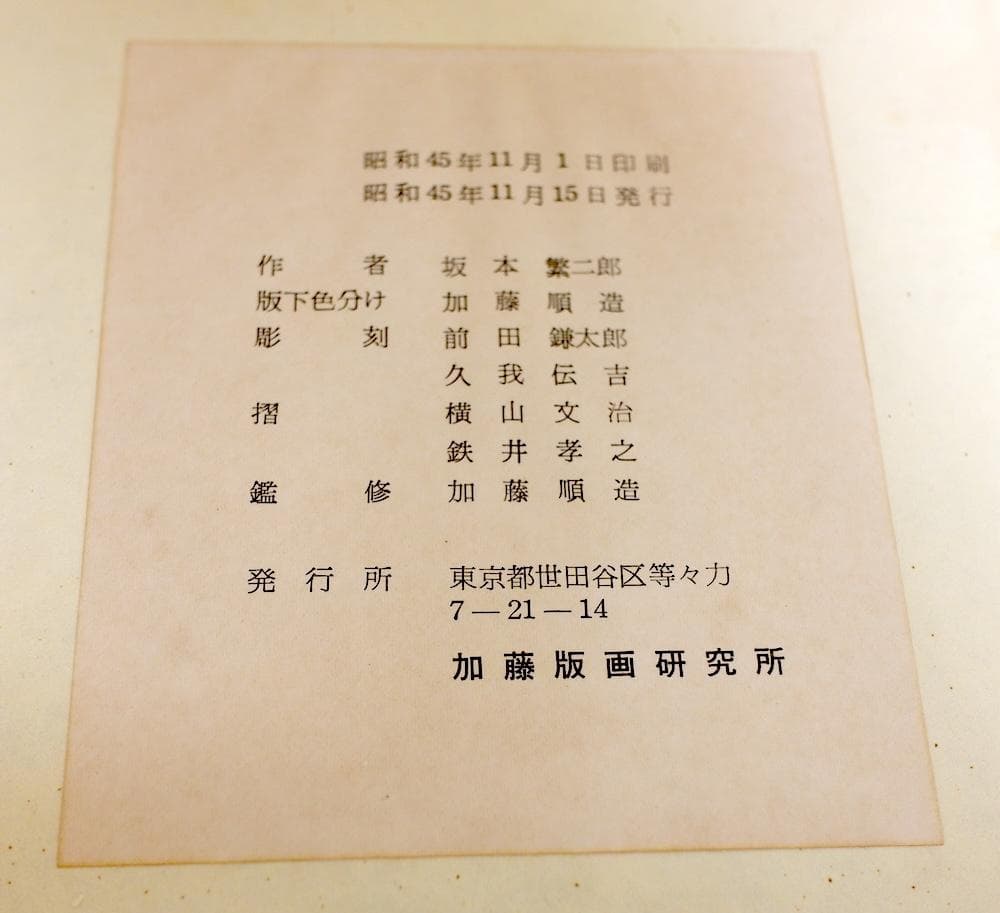 昭和45年11月1日印刷
昭和45年11月15日発行
作者 坂本繁二郎
版下色分け 加藤順造
彫刻 前田鎌太郎
久我伝吉
摺 横山文治
鉄井孝之
鑑修 加藤順造
発行所 東京都世田谷区等々力
7―21―14
加藤版画研究所